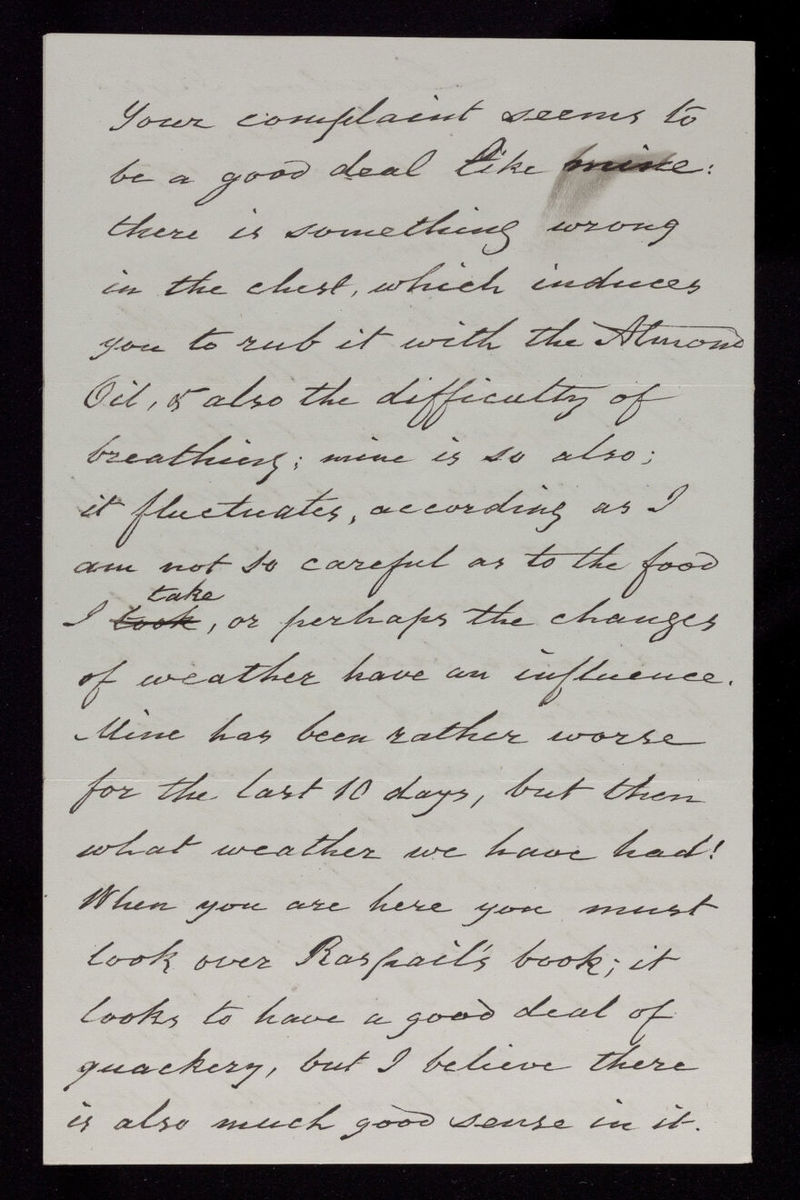 Your complaint seems to
be a good deal like mine:
there is something wrong
in the chest, which induces
you to rub it with the Almond
Oil, & also the difficulty of
breathing; mine is so also;
it fluctuates, according as I
am not so careful as to the food
take
I took, or perhaps the changes
of weather have an influence.
Mine has been rather worse
for the last 10 days, but then
what weather we have had!
When you are here you must
look over Raspail's book; it
looks to have a good deal of
quackery, but I believe there
is also much good sense in it.